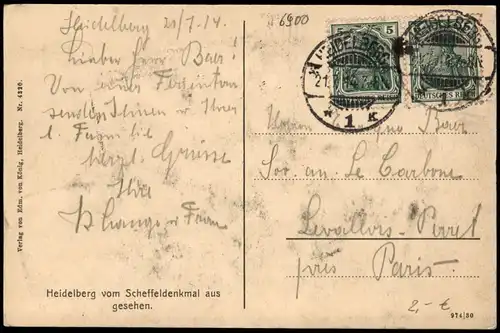 6900
Heidelberg 21/7.14.
Lieber Herr Baer!
Von einer Ferientour
senden Ihnen u Ihrer
l. Familie
herzl. Grüsse
Ihre
Lange u Frau
Heidelberg vom Scheffeldenkmal aus
gesehen.
Verlag von Edm. von König, Heidelberg. Nr. 4220.
5
DEUTSCHES REICH
HEIDELBERG
21.
* 1 K
HEIDELBERG
Baer
Soc. an. Le Carbone
Levallois-Perret
près Paris.
2,- €
974/30